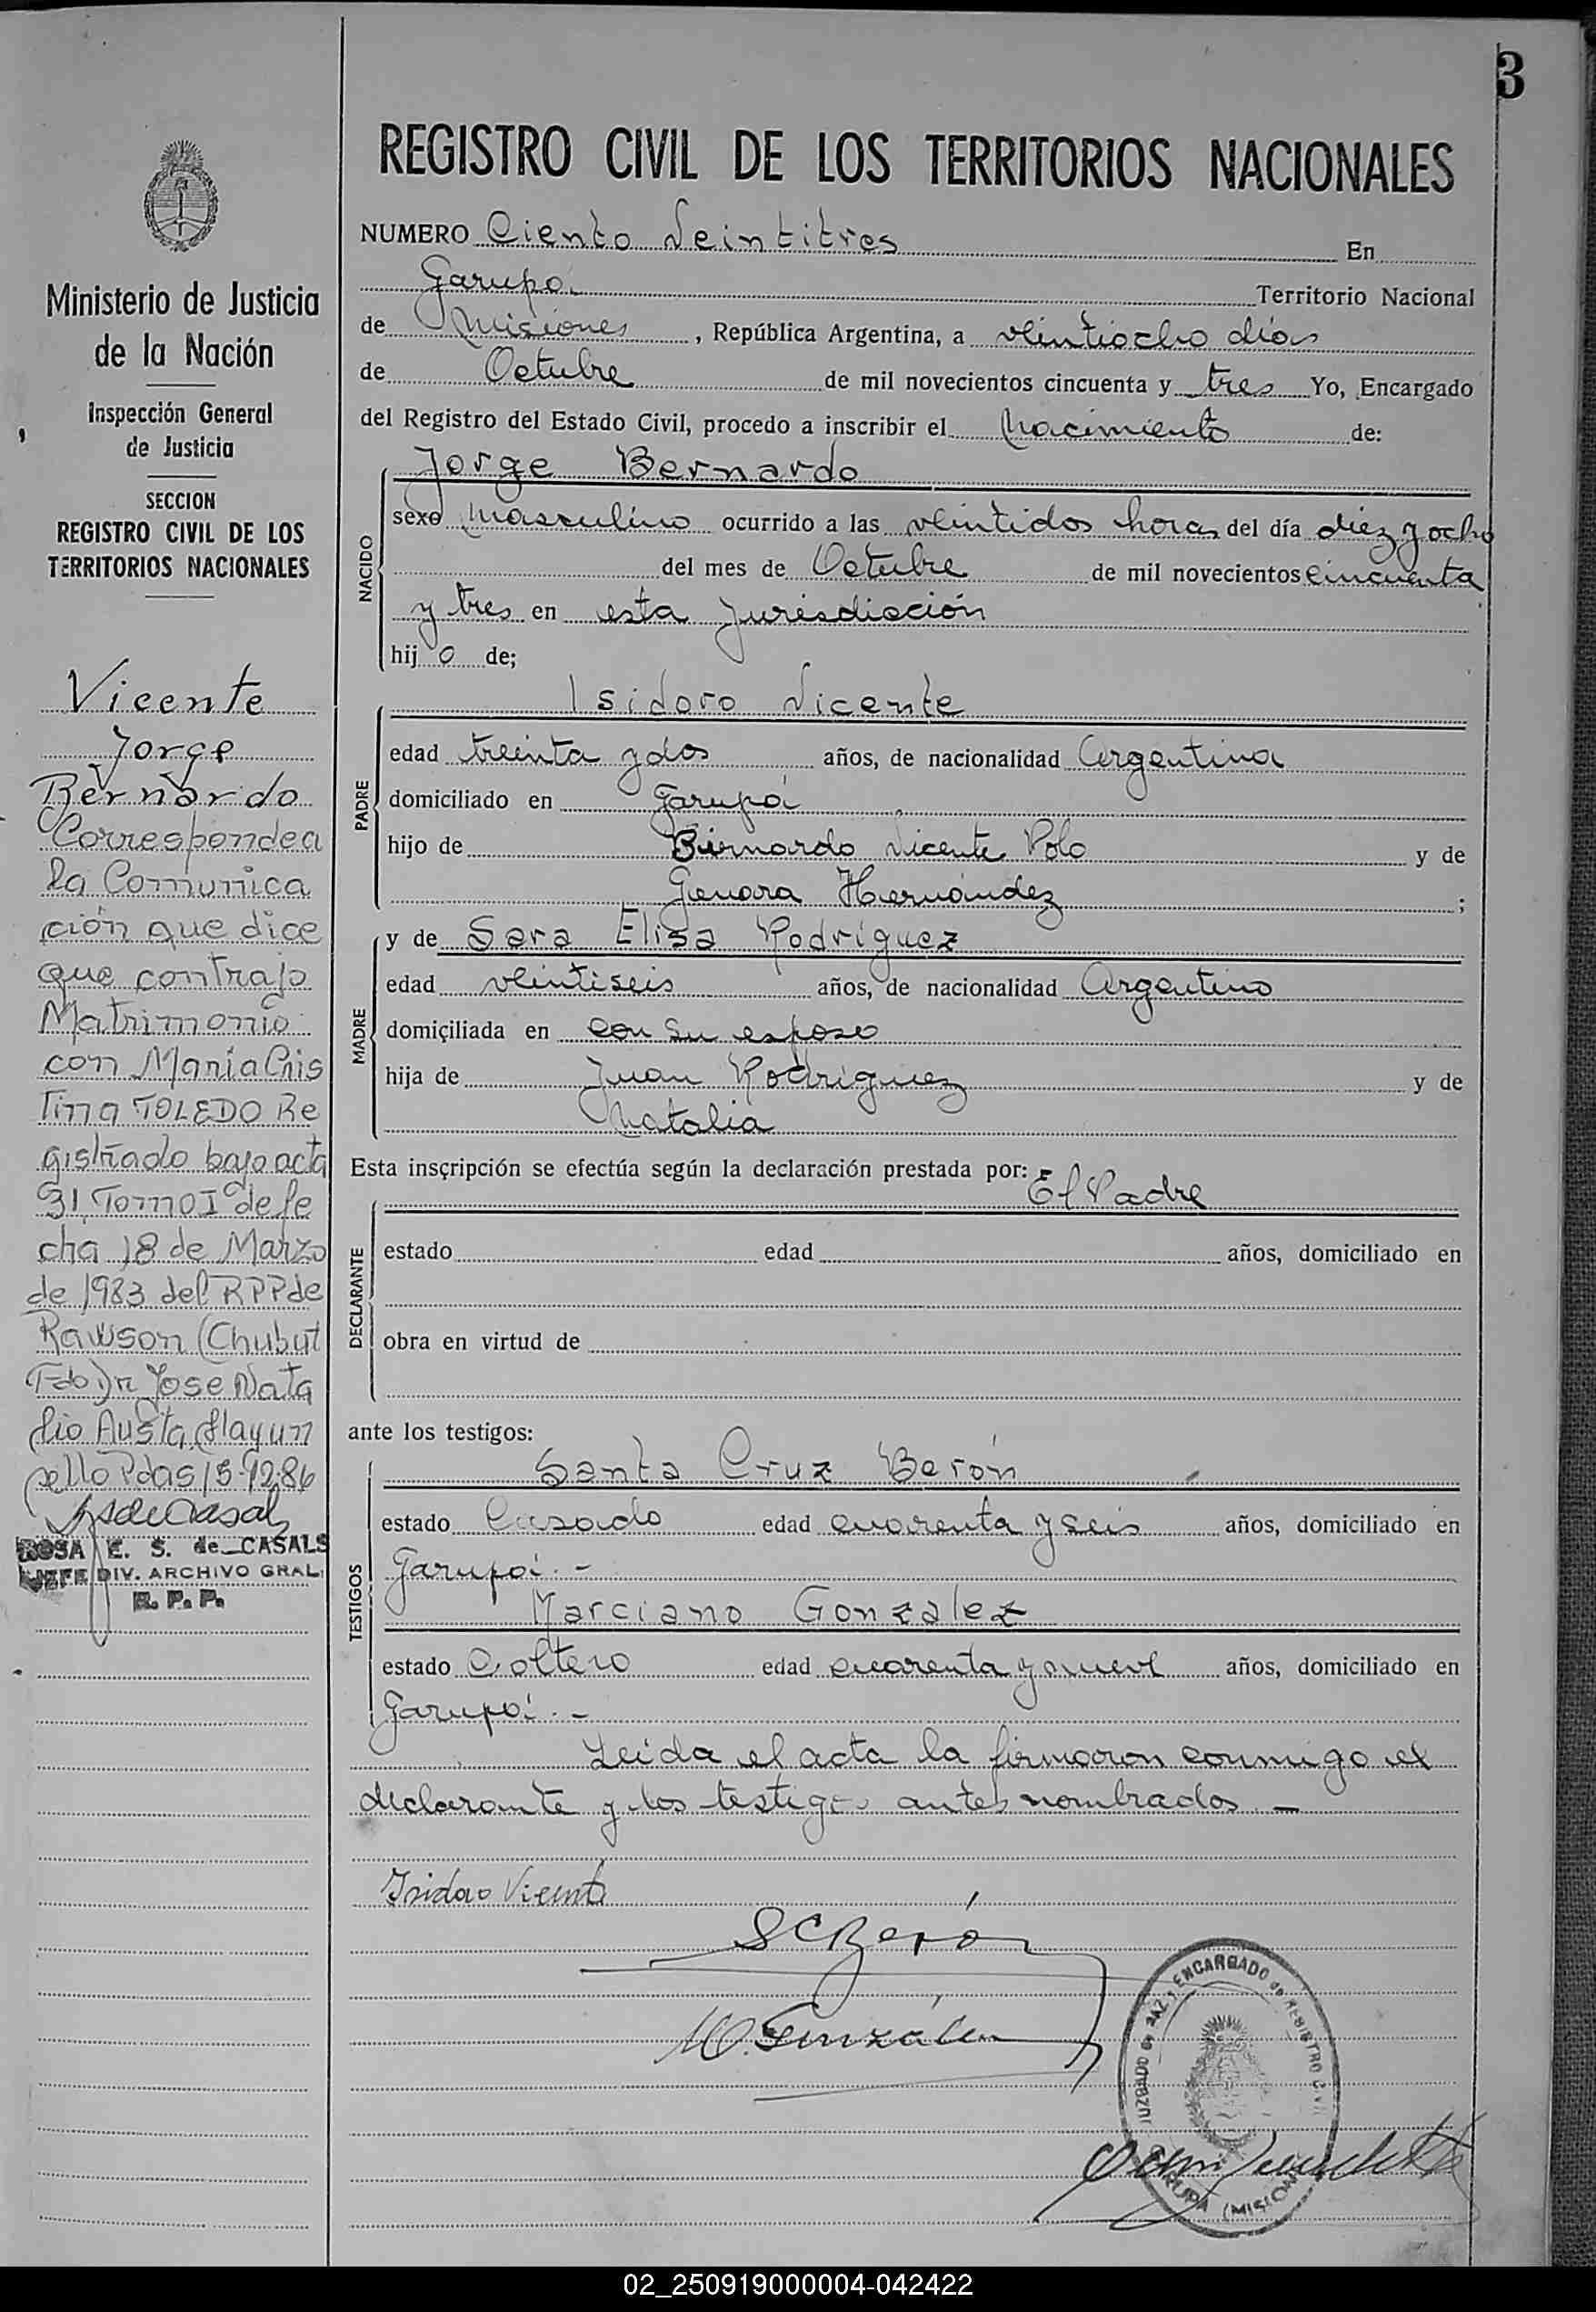 3
REGISTRO CIVIL DE LOS TERRITORIOS NACIONALES
Ministerio de Justicia
de la Nación
Inspección General
de Justicia
SECCION
REGISTRO CIVIL DE LOS
TERRITORIOS NACIONALES
Vicente
Jorge
Bernardo
Corresponde a
la Comunica
ción que dice
que contrajo
Matrimonio
con María Cris
tina TOLEDO Re
gistrado bajo acta
31 Tomo I de fe
cha 18 de Marzo
de 1983 del RPP de
Rawson (Chubut
Fdo Dr Jose Nata
lio Austa Hay un
sello Pdas 15-12-86
ROSA E. S. de CASALS
JEFE DIV. ARCHIVO GRAL.
R. P. P.
NUMERO Ciento Veintitres En
Garupá Territorio Nacional
de Misiones , República Argentina, a veintiocho días
de Octubre de mil novecientos cincuenta y tres Yo, Encargado
del Registro del Estado Civil, procedo a inscribir el Nacimiento de:
NACIDO
Jorge Bernardo
sexo Masculino ocurrido a las veintidos horas del día diez y ocho
del mes de Octubre de mil novecientos cincuenta
y tres en esta Jurisdicción
hijo de;
PADRE
Isidoro Vicente
edad treinta y dos años, de nacionalidad Argentina
domiciliado en Garupá
hijo de Bernardo Vicente Polo y de
Genora Hernández ;
MADRE
y de Sara Elisa Rodríguez
edad veintiseis años, de nacionalidad Argentino
domiciliada en con su esposo
hija de Juan Rodríguez y de
Natalia
Esta inscripción se efectúa según la declaración prestada por: El Padre
DECLARANTE
estado edad años, domiciliado en
obra en virtud de
ante los testigos:
TESTIGOS
Santa Cruz Berón
estado Casado edad cuarenta y seis años, domiciliado en
Garupá. -
Marciano Gonzalez
estado Soltero edad cuarenta y nueve años, domiciliado en
Garupá. -
Leida el acta la firmaron conmigo el
declarante y los testigos antes nombrados. -
Isidoro Vicente
S C Berón
M. González
JUZGADO DE PAZ Y ENCARGADO de REGISTRO CIVIL
GARUPA (MISIONES)
02_250919000004-042422